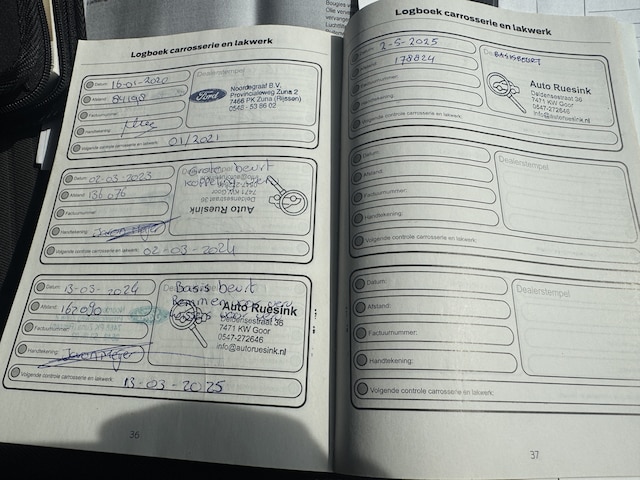 Logboek carrosserie en lakwerk
Datum: 16-01-2020
Dealerstempel
Afstand: 84198
Ford
Noordegraaf B.V.
Provincialeweg Zuna 2
7466 PK Zuna (Rijssen)
0548 - 53 86 02
Factuurnummer:
Handtekening:
Volgende controle carrosserie en lakwerk: 01/2021
Datum: 02-03-2023
Grote beurt
Afstand: 136076
Factuurnummer:
Auto Ruesink
Deldensestraat 36
7471 KW Goor
Handtekening:
Volgende controle carrosserie en lakwerk: 02-03-2024
Datum: 13-03-2024
Basis beurt
Afstand:
Remmen
Auto Ruesink
Deldensestraat 36
7471 KW Goor
0547-272646
info@autoruesink.nl
Factuurnummer:
Handtekening:
Volgende controle carrosserie en lakwerk: 13-03-2025
36
Logboek carrosserie en lakwerk
2-5-2025
BASISBEURT
178824
Auto Ruesink
Deldensestraat 36
7471 KW Goor
0547-272646
info@autoruesink.nl
Volgende controle carrosserie en lakwerk:
Datum:
Dealerstempel
Afstand:
Factuurnummer:
Handtekening:
Volgende controle carrosserie en lakwerk:
Datum:
Dealerstempel
Afstand:
Factuurnummer:
Handtekening:
Volgende controle carrosserie en lakwerk:
37